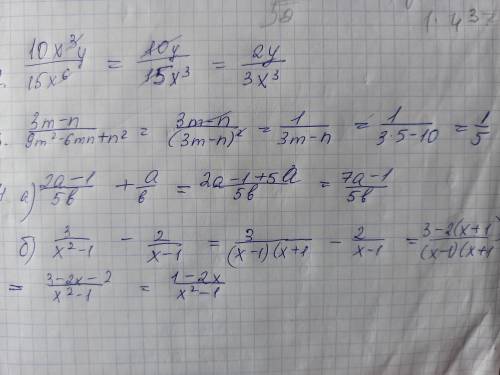 50 1.437
10x³y/15x⁶ = 10y/15x³ = 2y/3x³
3m-n/9m²-6mn+n² = 3m-n/(3m-n)² = 1/3m-n = 1/3·5-10 = 1/5
а) 2a-1/5b + a/b = 2a-1+5a/5b = 7a-1/5b
б) 3/x²-1 - 2/x-1 = 3/(x-1)(x+1 - 2/x-1 = 3-2(x+1)/(x-1)(x+1
= 3-2x-2/x²-1 = 1-2x/x²-1